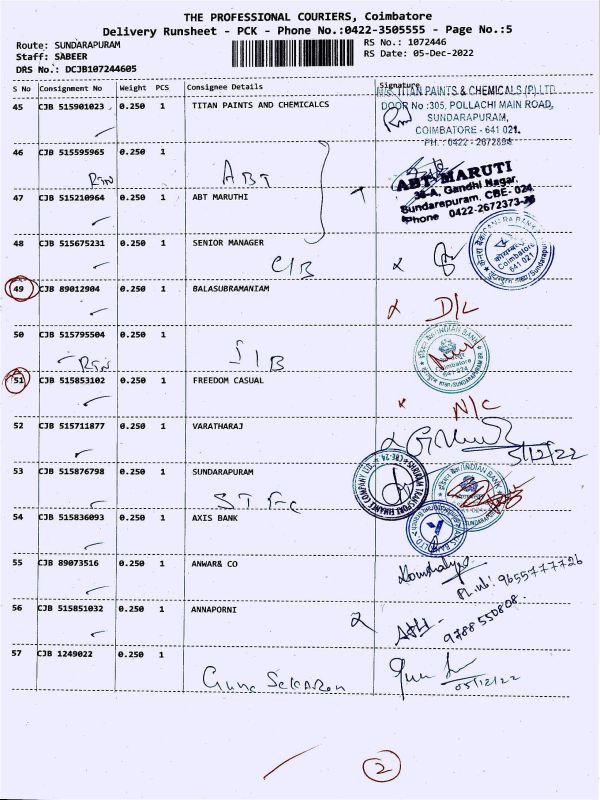 THE PROFESSIONAL COURIERS, Coimbatore
Delivery Runsheet - PCK - Phone No.:0422-3505555 - Page No.:5
Route: SUNDARAPURAM RS No.: 1072446
Staff: SABEER RS Date: 05-Dec-2022
DRS No.: DCJB107244605
S No Consignment No Weight PCS Consignee Details Signature
45 CJB 515901023 0.250 1 TITAN PAINTS AND CHEMICALCS
M/S. TITAN PAINTS & CHEMICALS (P) LTD
DOOR No :305, POLLACHI MAIN ROAD,
SUNDARAPURAM,
COIMBATORE - 641 021.
PH. : 0422 - 2672894
46 CJB 515595965 0.250 1
RTN ABT
47 CJB 515210964 0.250 1 ABT MARUTHI
ABT MARUTI
38-A, Gandhi Nagar,
Sundarapuram, CBE- 024
Phone 0422-2672373
48 CJB 515675231 0.250 1 SENIOR MANAGER
C/B
CANARA BANK
Coimbatore
641 021
49 CJB 89012904 0.250 1 BALASUBRAMANIAM
D/L
50 CJB 515795504 0.250 1
RTN SIB
INDIAN BANK
Coimbatore
51 CJB 515853102 0.250 1 FREEDOM CASUAL
N/C
52 CJB 515711877 0.250 1 VARATHARAJ
5/12/22
53 CJB 515876798 0.250 1 SUNDARAPURAM
STFC
SHRIRAM TRANSPORT FINANCE COMPANY LTD. CBE-24
INDIAN BANK
54 CJB 515836093 0.250 1 AXIS BANK
55 CJB 89073516 0.250 1 ANWAR& CO
Ph.nb: 9655777726
56 CJB 515851032 0.250 1 ANNAPORNI
9788550808
57 CJB 1249022 0.250 1
Guna Sekaran
05/12/22
2